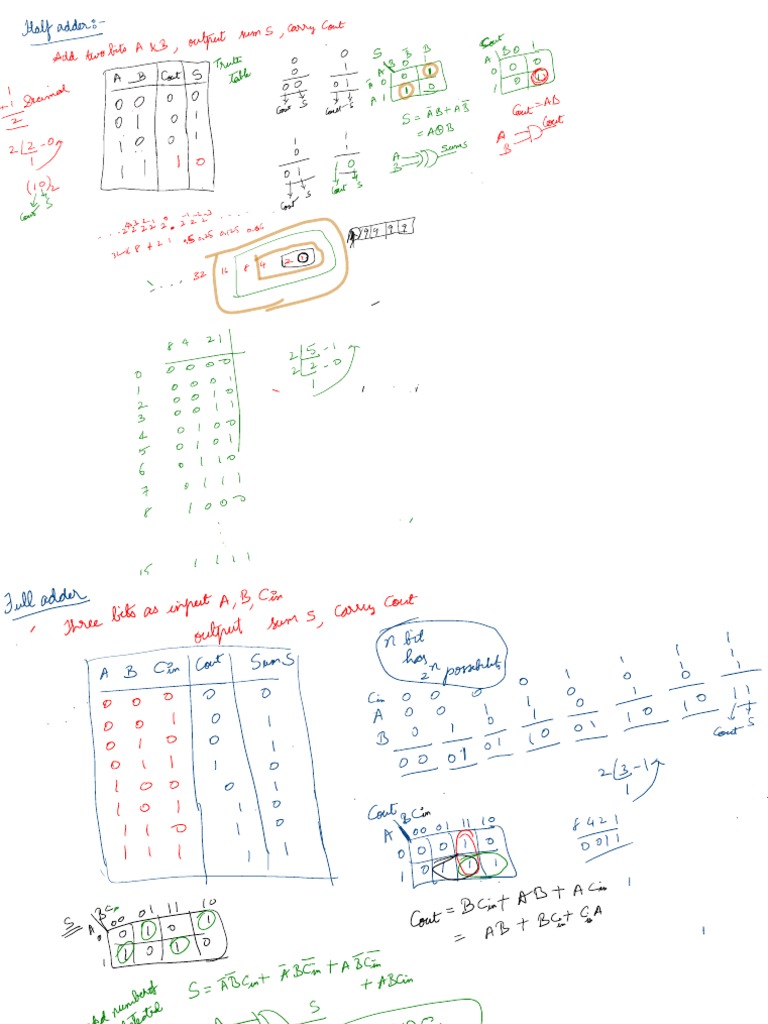 Half adder:-
Add two bits A & B, output sum S, carry Cout
Truth table
A B Cout S
0 0 0 0
0 1 0 1
1 0 0 1
1 1 1 0
1
+1
2
Decimal
2 2 - 0
1
(10)2
Cout S
0
0
00
Cout S
0
1
01
Cout S
1
0
01
Cout S
1
1
10
Cout S
S
A B 0 1
0 0 1
1 1 0
S = A̅B + AB̅
= A⊕B
A
B
Sum S
Cout
A B 0 1
0 0 0
1 0 1
Cout = AB
A
B
Cout
32 16 8 4 2 1
9 9 9 9
8 4 2 1
0 0 0 0 0
1 0 0 0 1
2 0 0 1 0
3 0 0 1 1
4 0 1 0 0
5 0 1 0 1
6 0 1 1 0
7 0 1 1 1
8 1 0 0 0
15 1 1 1 1
2 5 - 1
2 2 - 0
1
Full adder
Three bits as input A, B, Cin
output sum S, carry Cout
A B Cin Cout Sum S
0 0 0 0 0
0 0 1 0 1
0 1 0 0 1
0 1 1 1 0
1 0 0 0 1
1 0 1 1 0
1 1 0 1 0
1 1 1 1 1
n bit
has
2^n possibilities
Cin 0 0 0 0 1 1 1 1
A 0 0 1 1 0 0 1 1
B 0 1 0 1 0 1 0 1
00 01 01 10 01 10 10 11
Cout S
2 3 - 1
1
8 4 2 1
0 0 1 1
Cout
A BCin 00 01 11 10
0 0 0 1 0
1 0 1 1 1
Cout = BCin + AB + ACin
= AB + BCin + CinA
S
A BCin 00 01 11 10
0 0 1 0 1
1 1 0 1 0
S = A̅B̅Cin + A̅BC̅in + AB̅C̅in
+ ABCin
number of
S